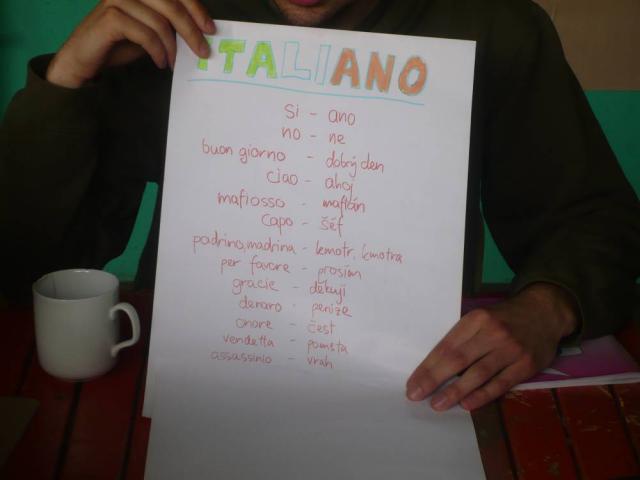 ITALIANO
si - ano
no - ne
buon giorno - dobrý den
ciao - ahoj
mafiosso - mafián
capo - šéf
padrino, madrina - kmotr, kmotra
per favore - prosím
gracie - děkuji
denaro - peníze
onore - čest
vendetta - pomsta
assassinio - vrah